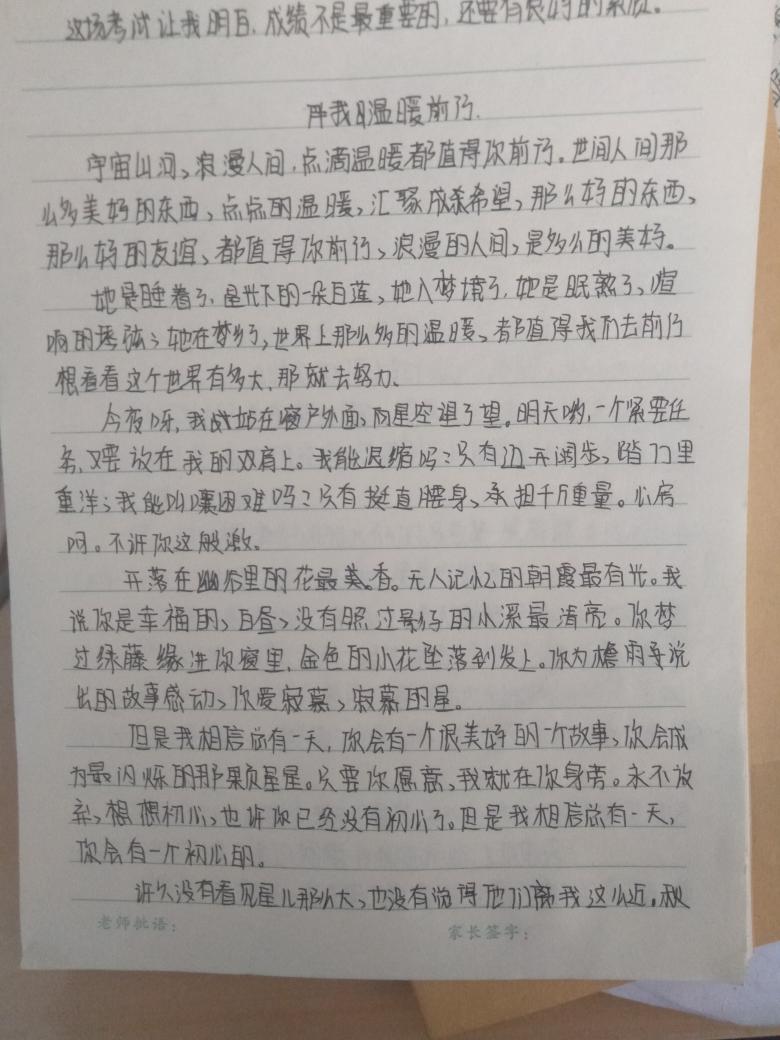 这场考试让我明白,成绩不是最重要的,还要有良好的素质。
温暖前行.
宇宙山河、浪漫人间,点滴温暖都值得你前行。世间人间那
么多美好的东西、点点的温暖、汇聚成条希望、那么好的东西、
那么好的友谊、都值得你前行、浪漫的人间、是多么的美好。
她是睡着了,星光下的一朵白莲、她入梦境了,她是眠熟了、喧
响的 她在梦乡了,世界上那么多的温暖、都值得我们去前行
想看看这个世界有多大、那就去努力、
今夜呀,我站在窗户外面、向星空望了望。明天哟,一个紧要任
务,又要放在我的双肩上。我能退缩吗?只有迈开阔步、踏万里
重洋;我能叫嚷困难吗?只有挺直腰身、承担千斤重量。心房
呵。不许你这般激、
开落在幽谷里的花最美、香。无人记忆的朝霞最有光。我
说你是幸福的、白昼、没有照过影子的小溪最清亮。你梦
过绿藤缘进你窗里,金色的小花坠落到发上。你为檐雨 说
出的故事感动、你爱寂寞、寂寞的星。
但是我相信总有一天,你会有一个很美好的一个故事、你会成
为最闪烁的那颗星星。只要你愿意、我就在你身旁。永不放
弃、想想初心、也许你已经没有初心了。但是我相信总有一天,
你会有一个初心的。
许久没有看见星儿那么大、也没有觉得他们离我这么近。秋
老师批语:
家长签字: